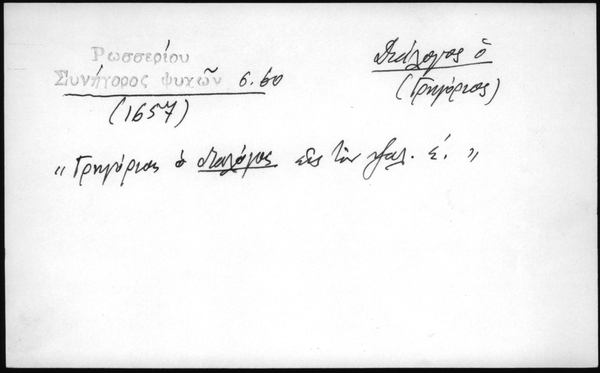 Ρωσσερίου
Συνήγορος ψυχῶν σ. 60
(1657)
Διάλογος ὁ
(Γρηγόριος)
"Γρηγόριος ὁ διαλόγος εἰς τὸν ψαλ. ε'."